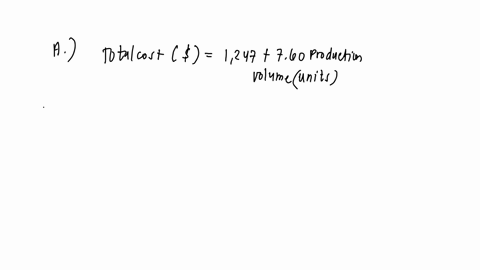 A.) Total cost ($) = 1,247 + 7.60 Production
volume (units)